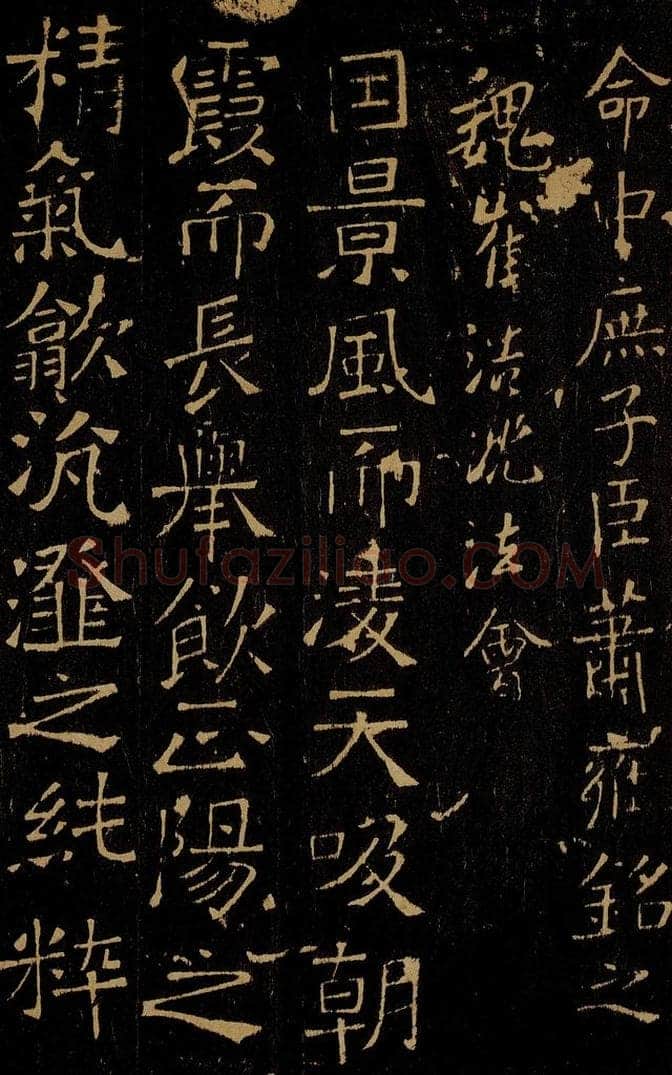 命中庶子臣蕭雍銘之
魏崔浩沈法會
因景風而淩天吸朝
霞而長舉飲正陽之
精氣歙沆瀣之純粹
Shufaziliao.COM